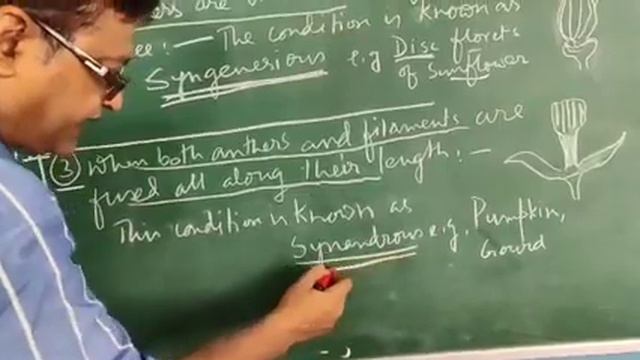 The condition is known as
Syngenesious e.g Disc florets
of Sunflower
(3) When both anthers and filaments are
fused all along their length:-
This condition is known as
Synandrous e.g. Pumpkin,
Gourd